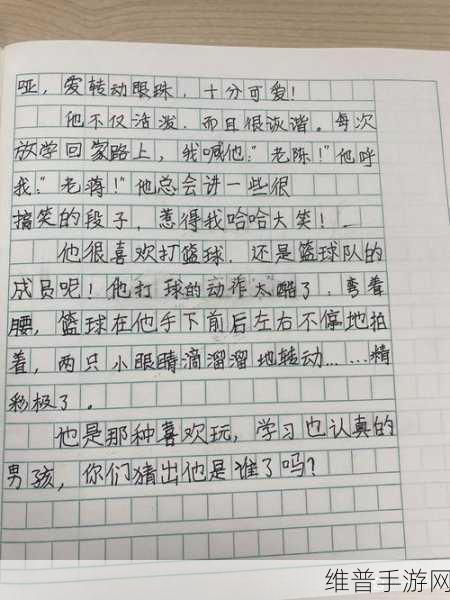 哑，爱转动眼珠，十分可爱！
他不仅活泼，而且很诙谐。每次
放学回家路上，我喊他：“老陈！”他呼
我：“老蒋！”他总会讲一些很
搞笑的段子，惹得我哈哈大笑！
他很喜欢打篮球，还是篮球队的
成员呢！他打球的动作太酷了，弯着
腰，篮球在他手下前后左右不停地拍
着，两只小眼睛滴溜溜地转动……精
彩极了。
他是那种喜欢玩，学习也认真的
男孩，你们猜出他是谁了吗？
维普手游网